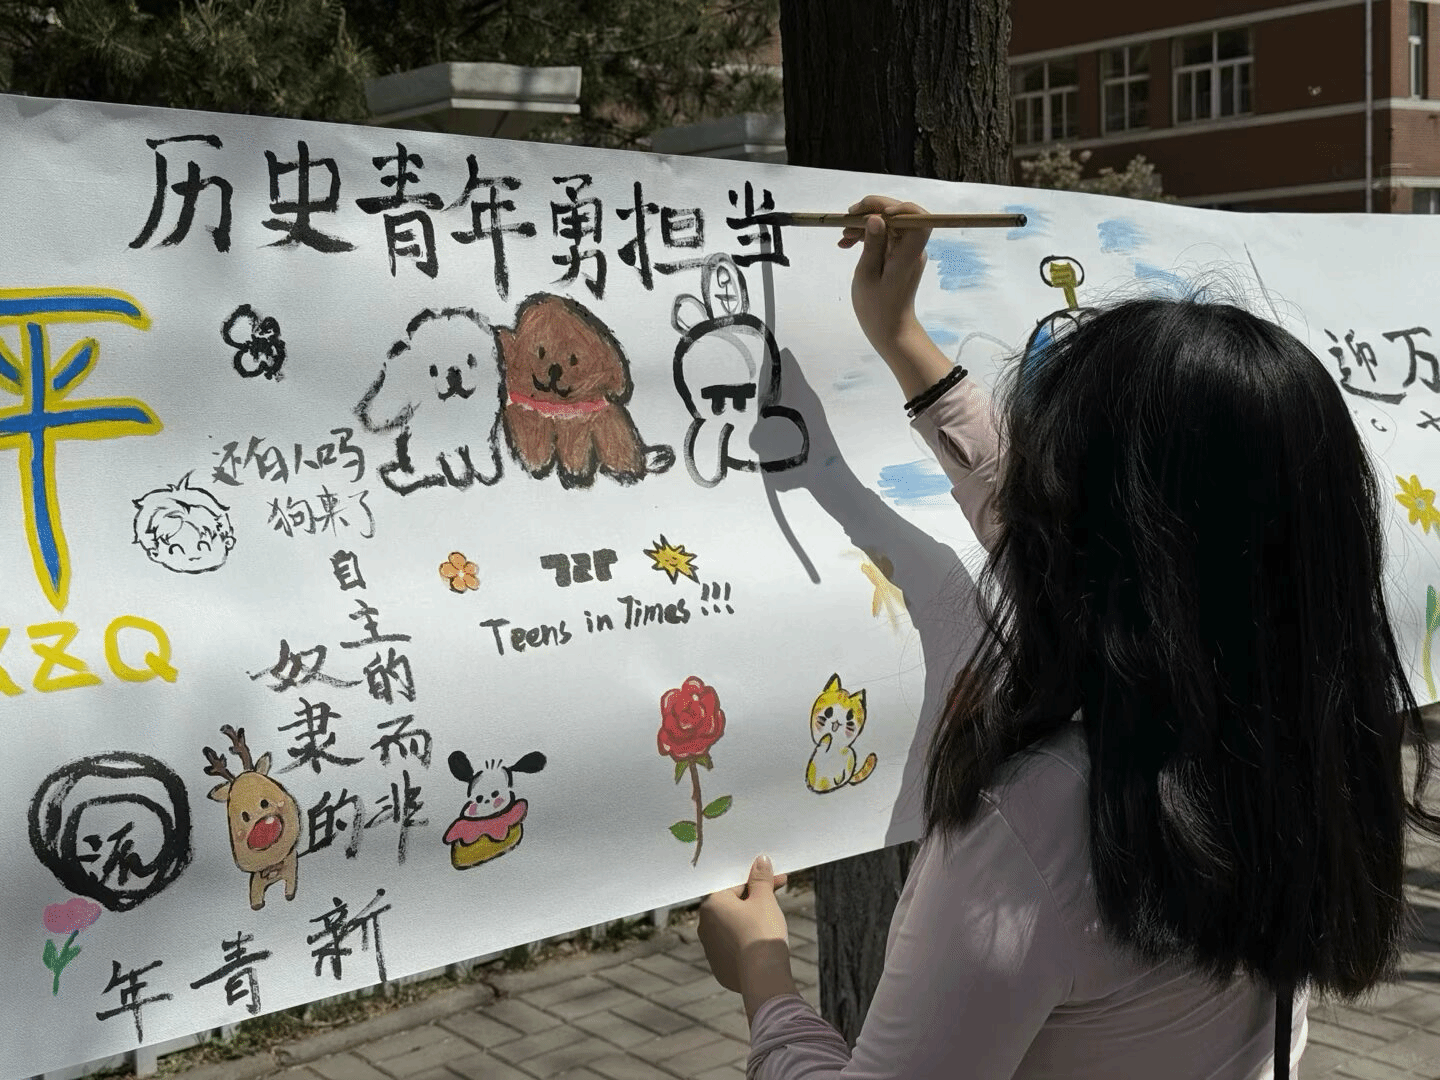 历史青年勇担当
平
ZQ
还有人吗
狗来了
自主的而非
奴隶的
Teens in Times!!!
流
年青新
迎万